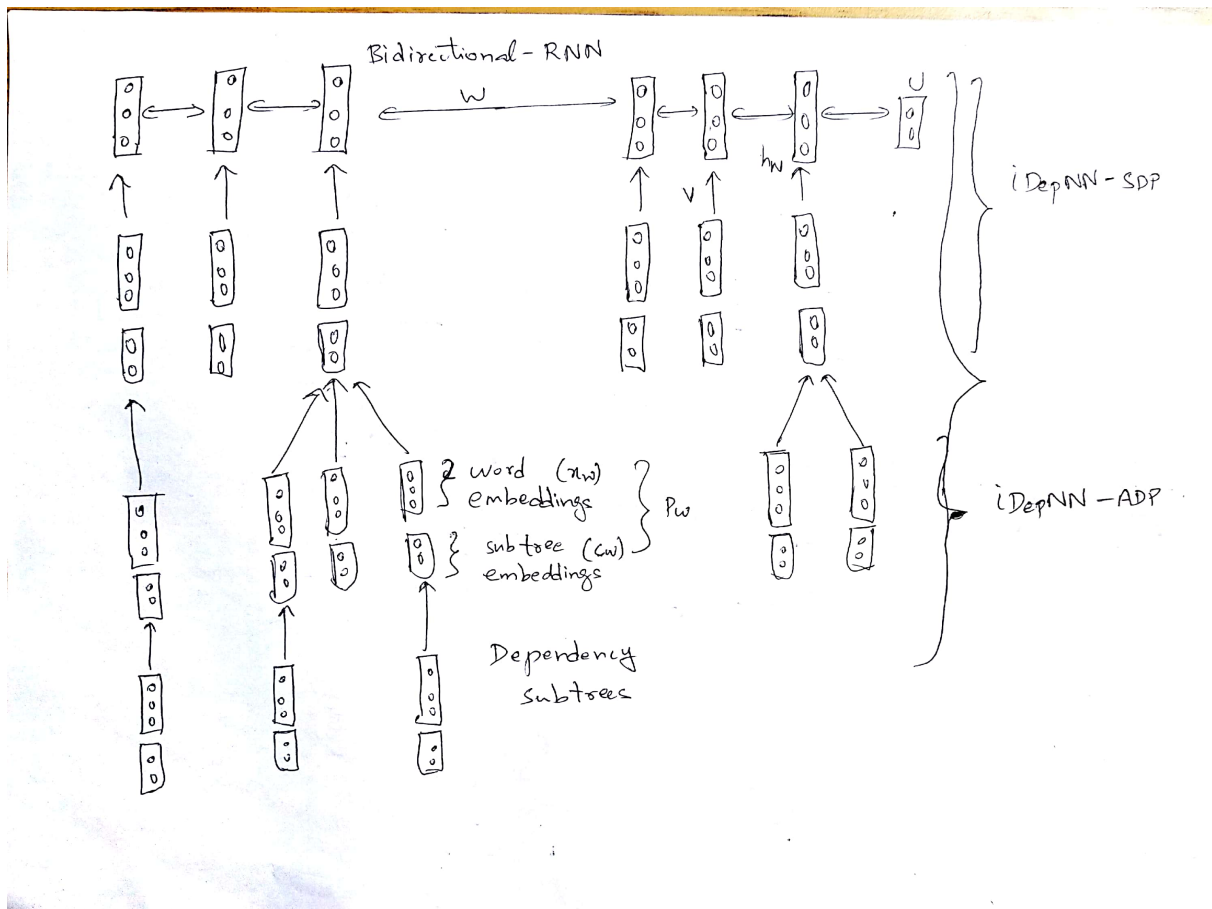 Bidirectional-RNN
W
U
hw
V
iDepNN-SDP
word (xw)
embeddings
Pw
subtree (cw)
embeddings
iDepNN-ADP
Dependency
subtrees